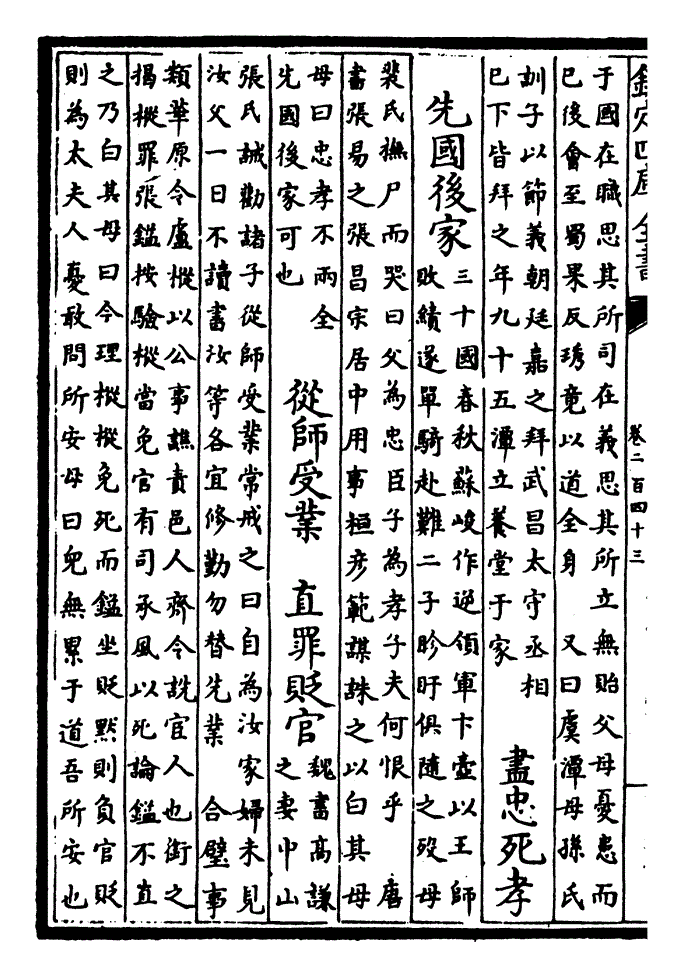 欽定四庫全書
卷二百四十三
于國在職思其所司在義思其所立無貽父母憂患而
已後會至蜀果反琇竟以道全身　又曰虞潭母孫氏
訓子以節義朝廷嘉之拜武昌太守丞相
已下皆拜之年九十五潭立養堂于家
盡忠死孝
先國後家
三十國春秋蘇峻作逆領軍卞壼以王師
敗績遂單騎赴難二子眕盱俱隨之歿母
裴氏撫尸而哭曰父為忠臣子為孝子夫何恨乎　唐
書張易之張昌宗居中用事桓彦範謀誅之以白其母
母曰忠孝不兩全
先國後家可也
從師受業　直罪貶官
魏書高謙
之妻中山
張氏誡勸諸子從師受業常戒之曰自為汝家婦未見
汝父一日不讀書汝等各宜修勤勿替先業　合璧事
類華原令盧樅以公事譙責邑人齊令詵宦人也銜之
搆樅罪張鎰按驗樅當免官有司承風以死論鎰不直
之乃白其母曰今理樅樅免死而鎰坐貶默則負官貶
則為太夫人憂敢問所安母曰兒無累于道吾所安也